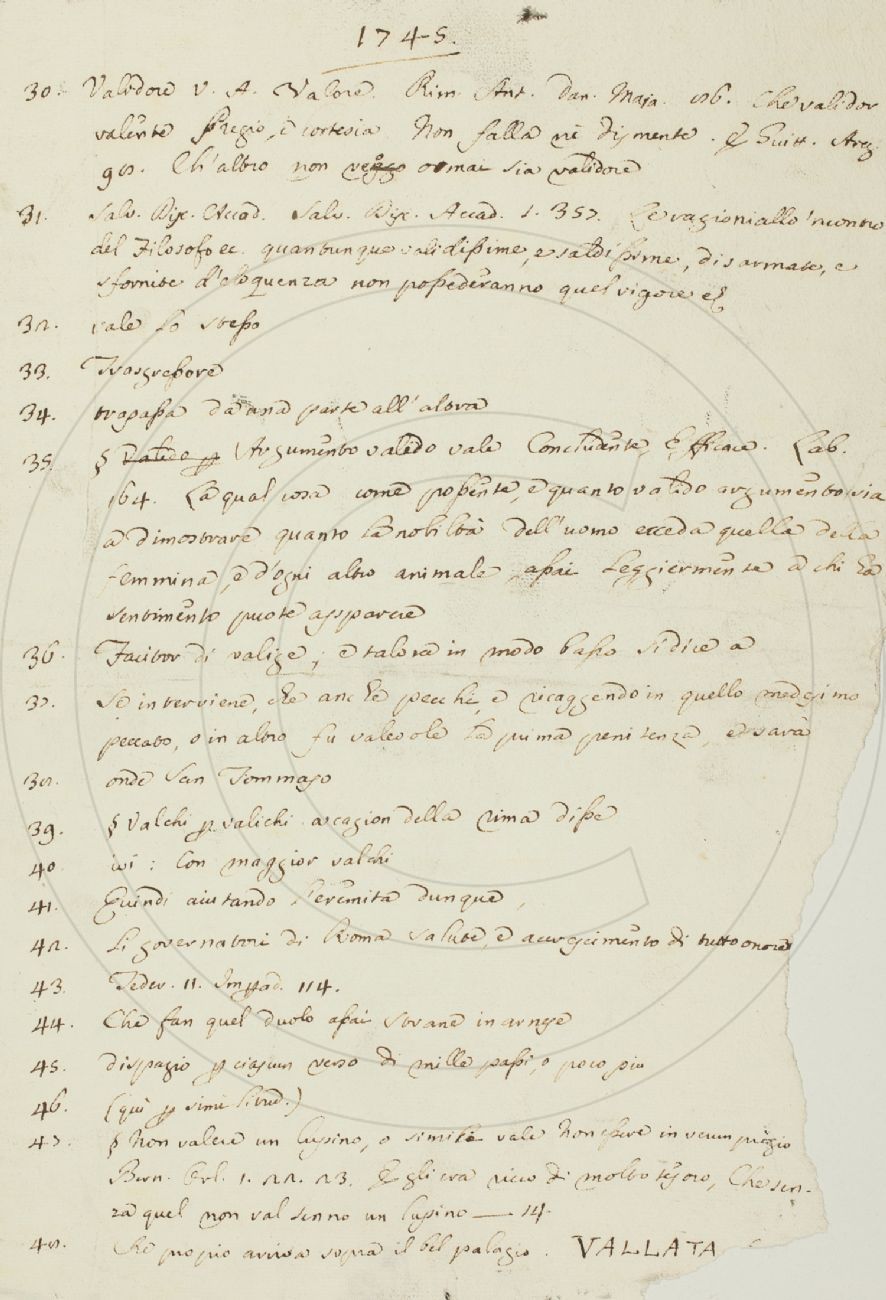 1745.
30. Validore V. A. Valore. Rim. Ant. Dan. Maja. 86. Che validor
valente pregio, e cortesia Non falla nè dismente. E Guitt. Arez.
98. Ch'altro non veggo ormai sia validore
31. Salv. Disc. Accad. Salv. Disc. Accad. 1. 357. Le ragioni allo 'ncontro
del Filosofo ec. quantunque validissime, e saldissime, disarmate, e
sfornite d'eloquenza non possederanno quel vigore
32. vale lo stesso
33. Trasgressore
34. trapassa da una parte all'altra
35. § Valido p Argumento valido vale Concludente, Efficace. Lab.
164. La qual cosa come possente, e quanto valido argumento sia
a dimostrare quanto la nobiltà dell'uomo ecceda quella della
femmina, e d'ogni altro animale, assai leggiermente a chi ha
sentimento puote apparere
36. Facitor di valige; e talora in modo basso si dice a
37. Se interviene, che anche pecchi, e ricaggendo in quello medesimo
peccato, o in altro fu valevole la prima penitenza, e sarà
38. onde San Tommaso
39. § Valchi p valichi a cagion della rima disse
40 ivi: Con maggior valchi
41. Quindi aiutando l'eremita dunque,
42. Li governatori di Roma salute, e accrescimento di tutto onore
43. Feder. II. Imp. ad. 114.
44. Che fan quel duolo assai strane in arnese
45. di spazio p ciascun verso di mille passi, o poco più
46. (qui p similitud.)
47. § Non valere un lupino, o simili vale Non essere in verun pregio
Bern. Orl. 1. 22. 23. Egli era ricco di molto tesoro, Che sen-
za quel non val senno un lupino — 14.
48. Che proprio arriva sopra il bel palagio. VALLATA